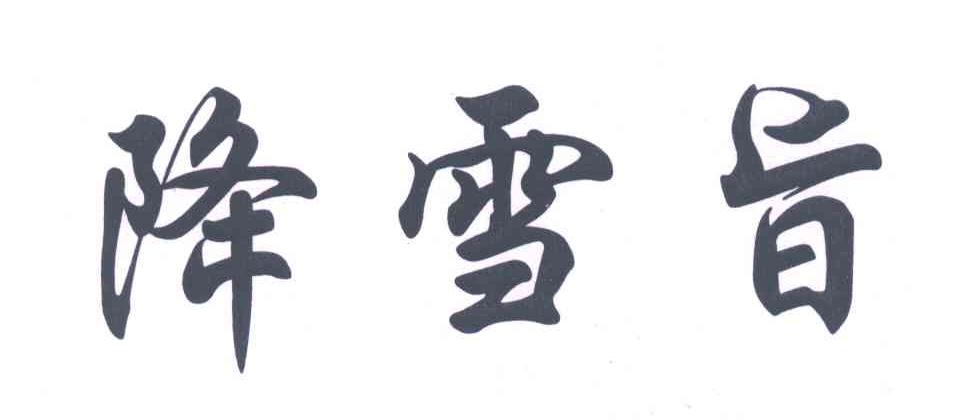 降雪旨